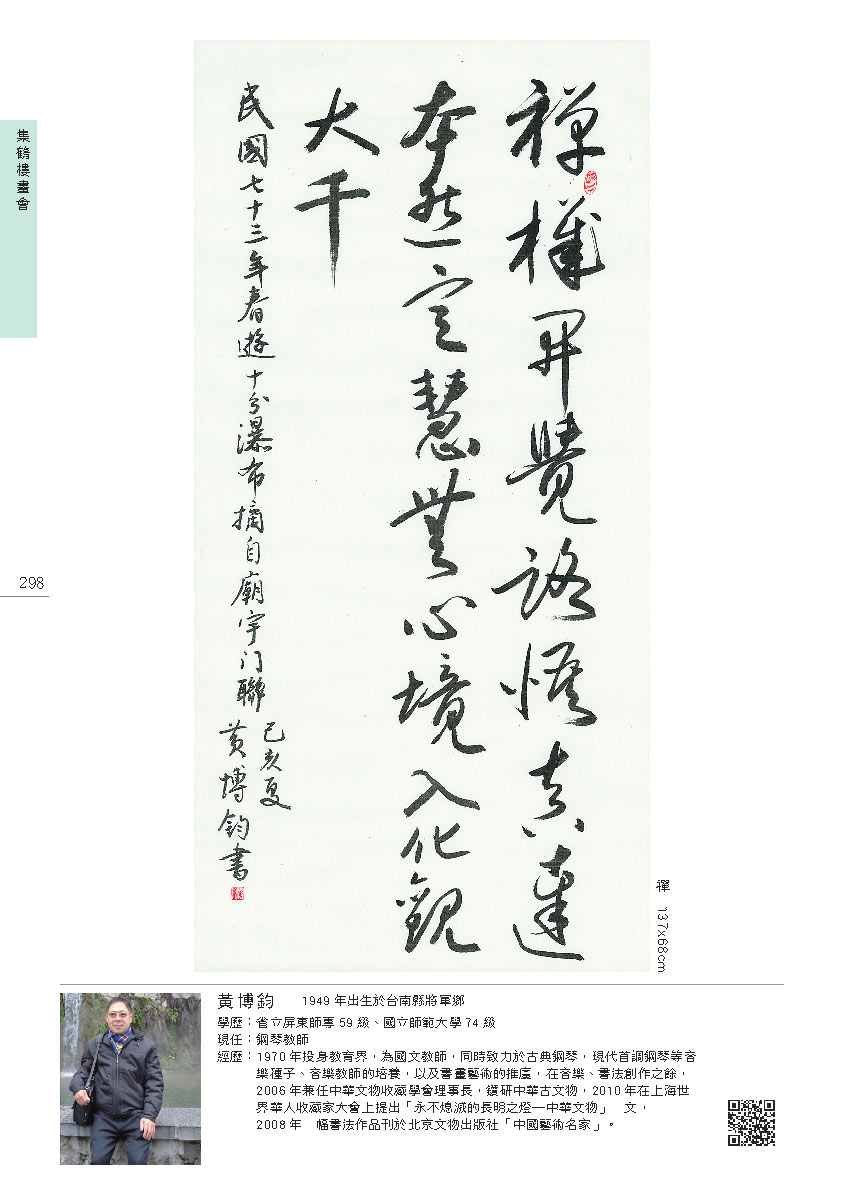 集鶴樓畫會
298
禪機開覺路悟真達
本然定慧無心境入化觀
大千
民國七十三年春遊十分瀑布摘自廟宇门聯
己亥夏
黃博鈞書
禪 137x68cm
黃博鈞 1949 年出生於台南縣將軍鄉
學歷：省立屏東師專 59 級、國立師範大學 74 級
現任：鋼琴教師
經歷：1970 年投身教育界，為國文教師，同時致力於古典鋼琴，現代首調鋼琴等音
樂種子、音樂教師的培養，以及書畫藝術的推廣，在音樂、書法創作之餘，
2006 年兼任中華文物收藏學會理事長，鑽研中華古文物，2010 年在上海世
界華人收藏家大會上提出「永不熄滅的長明之燈—中華文物」 文，
2008 年 幅書法作品刊於北京文物出版社「中國藝術名家」。